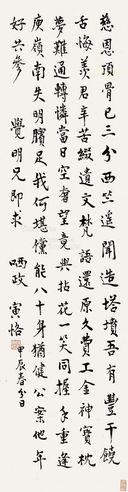 慈恩頂骨已三分西竺遙聞造塔墳吾有豐干饒
舌悔羨君辛苦綴遺文梵語還原久費工金神寶枕
夢難通轉憐當日空奢望竟與拈花一笑同握手重逢
庾嶺南失明臏足我何堪儻能八十身猶健公案他年
好共參 覺明兄即求 哂政 寅恪 甲辰春分日